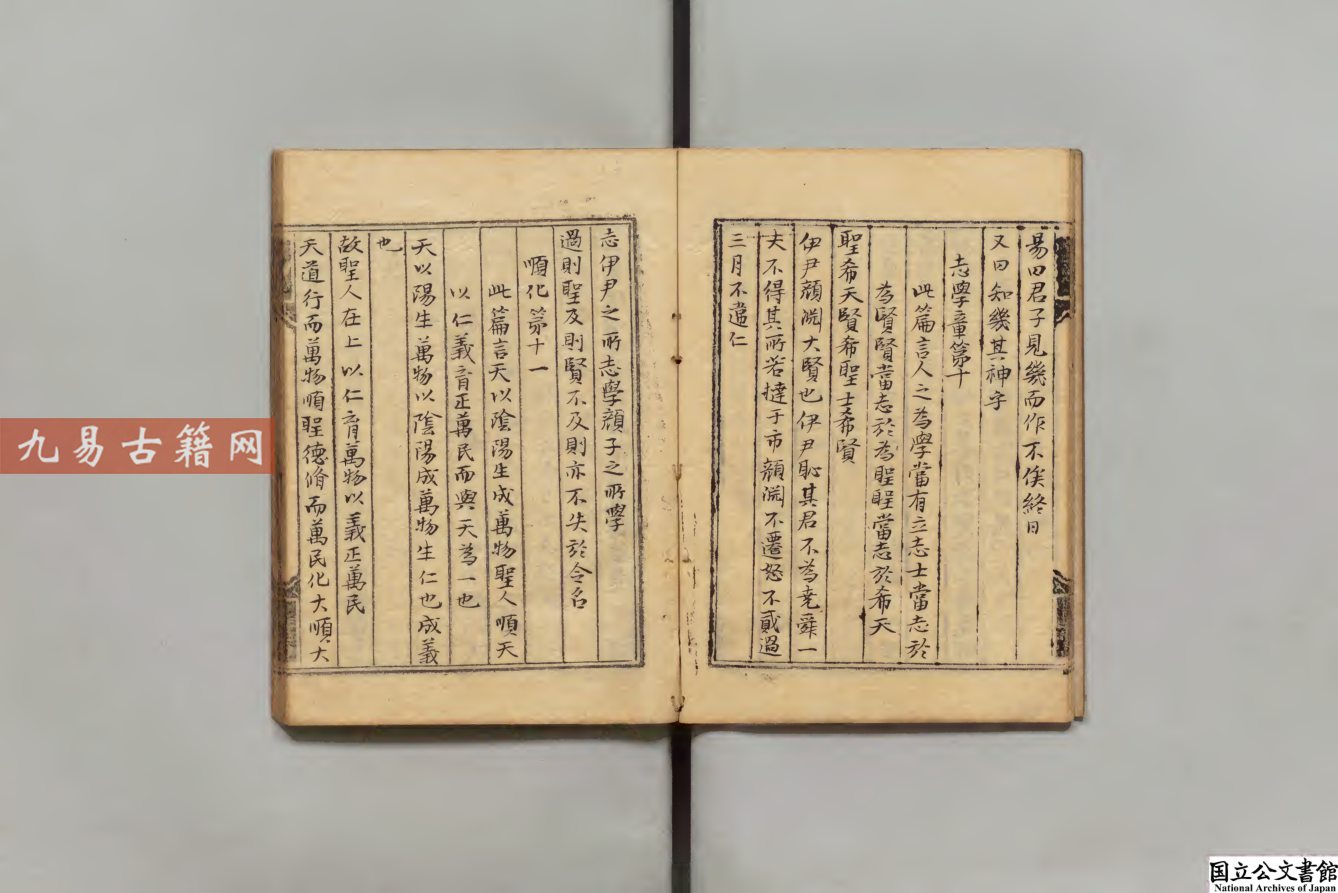 易曰君子見幾而作不俟終日
又曰知幾其神乎
志學章第十
此篇言人之為學當有立志士當志於
為賢賢當志於為聖聖當志於希天
聖希天賢希聖士希賢
伊尹顔淵大賢也伊尹恥其君不為堯舜一
夫不得其所若撻于市顔淵不遷怒不貳過
三月不違仁
志伊尹之所志學顔子之所學
過則聖及則賢不及則亦不失於令名
順化第十一
此篇言天以陰陽生成萬物聖人順天
以仁義育正萬民而與天為一也
天以陽生萬物以陰陽成萬物生仁也成義
也
故聖人在上以仁育萬物以義正萬民
天道行而萬物順聖德脩而萬民化大順大
九易古籍网
国立公文書館
National Archives of Japan